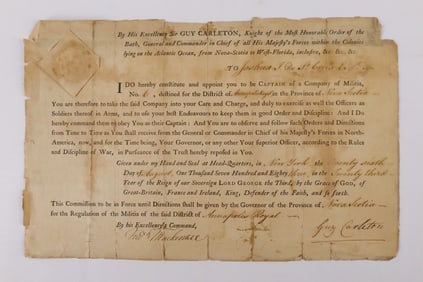 By His Excellency Sir GUY CARLETON, Knight of the Most Honorable Order of the
Bath, General and Commander in Chief of all His Majesty's Forces within the Colonies
lying on the Atlantic Ocean, from Nova-Scotia to West-Florida, inclusive, &c. &c. &c.
TO
I DO hereby constitute and appoint you to be CAPTAIN of a Company of Militia,
No. 6, destined for the District of Annapolis Royal in the Province of Nova Scotia
You are therefore to take the said Company into your Care and Charge, and duly to exercise as well the Officers as
Soldiers thereof in Arms, and to use your best Endeavours to keep them in good Order and Discipline: And I do
hereby command them to obey you as their Captain: And you are to observe and follow such Orders and Directions
from Time to Time as You shall receive from the General or Commander in Chief of his Majesty's Forces in North-
America, now, and for the Time being, Your Governor, or any Other your Superior Officer, according to the Rules
and Discipline of War, in Pursuance of the Trust hereby reposed in You.
Given under my Hand and Seal at Head-Quarters, in New York the Twenty sixth
Day of August One Thousand Seven Hundred and Eighty three in the Twenty third
Year of the Reign of our Sovereign LORD GEORGE the Third, by the Grace of GOD, of
Great-Britain, France and Ireland, KING, Defender of the Faith, and so forth.
This Commission to be in Force until Directions shall be given by the Governor of the Province of Nova Scotia
for the Regulation of the Militia of the said District of Annapolis Royal
By his Excellency's Command,
Guy Carleton